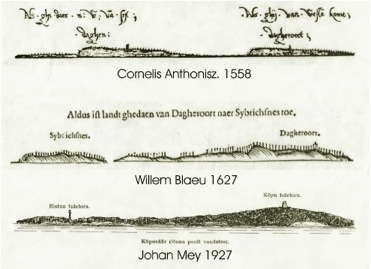 Als ghij van Weste kome;
daghen:
dagheroort;
Cornelis Anthonisz. 1558
Aldus ist landt ghedaen van Dagheroort naer Sybrichsnes toe,
Sybrichsnes.
Dagheroort.
Willem Blaeu 1627
Ristna tuletorn.
Kõpu tuletorn.
Kõpusäär (lõuna poolt vaadates).
Johan Mey 1927